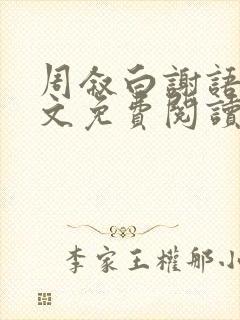 周叙白謝語
文免費閱讀
李家王權邮小